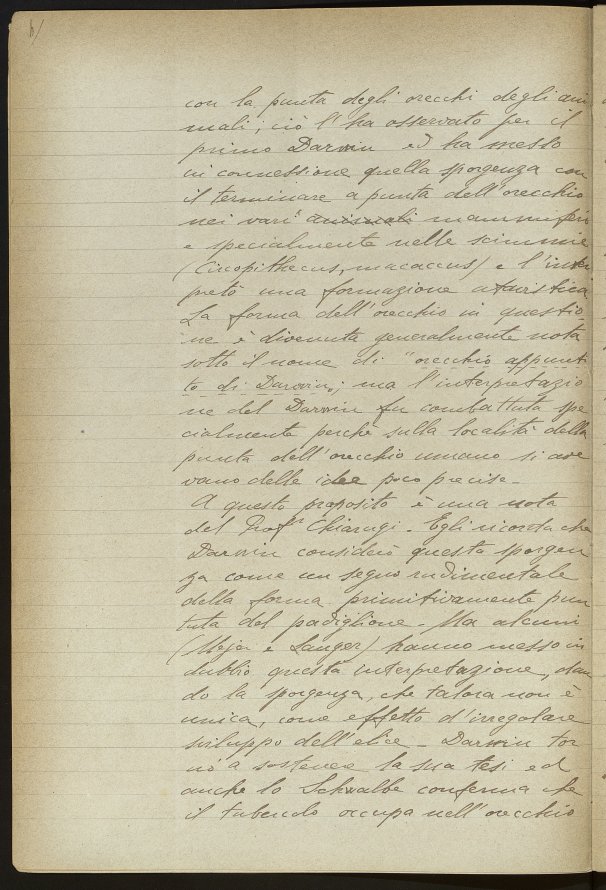 con la punta degli orecchi degli ani
mali; ciò l'ha osservato per il
primo Darwin ed ha messo
in connessione quella sporgenza con
il terminare a punta dell'orecchio
nei vari animali mammiferi
e specialmente nelle scimmie
(Cicopithecus, macaccus) e l'inter
pretò una formazione atavistica.
La forma dell'orecchio in questio-
ne è divenuta generalmente nota
sotto il nome di "orecchio appunti
to di Darwin„; ma l'interpretazio
ne del Darwin fu combattuta spe
cialmente perchè sulla località della
punta dell'orecchio umano si ave
vano delle idee poco precise.
A questo proposito è una nota
del Prof.r Chiarugi. Egli ricorda che
Darwin considerò questa sporgen
za come un segno rudimentale
della forma primitivamente pun
tuta del padiglione. Ma alcuni
(Mejer e Langer) hanno messo in
dubbio questa interpretazione, dan
do la sporgenza, che talora non è
unica, come effetto d'irregolare
sviluppo dell'elice. Darwin tor
nò a sostenere la sua tesi ed
anche lo Schwalbe conferma che
il tubercolo occupa nell'orecchio